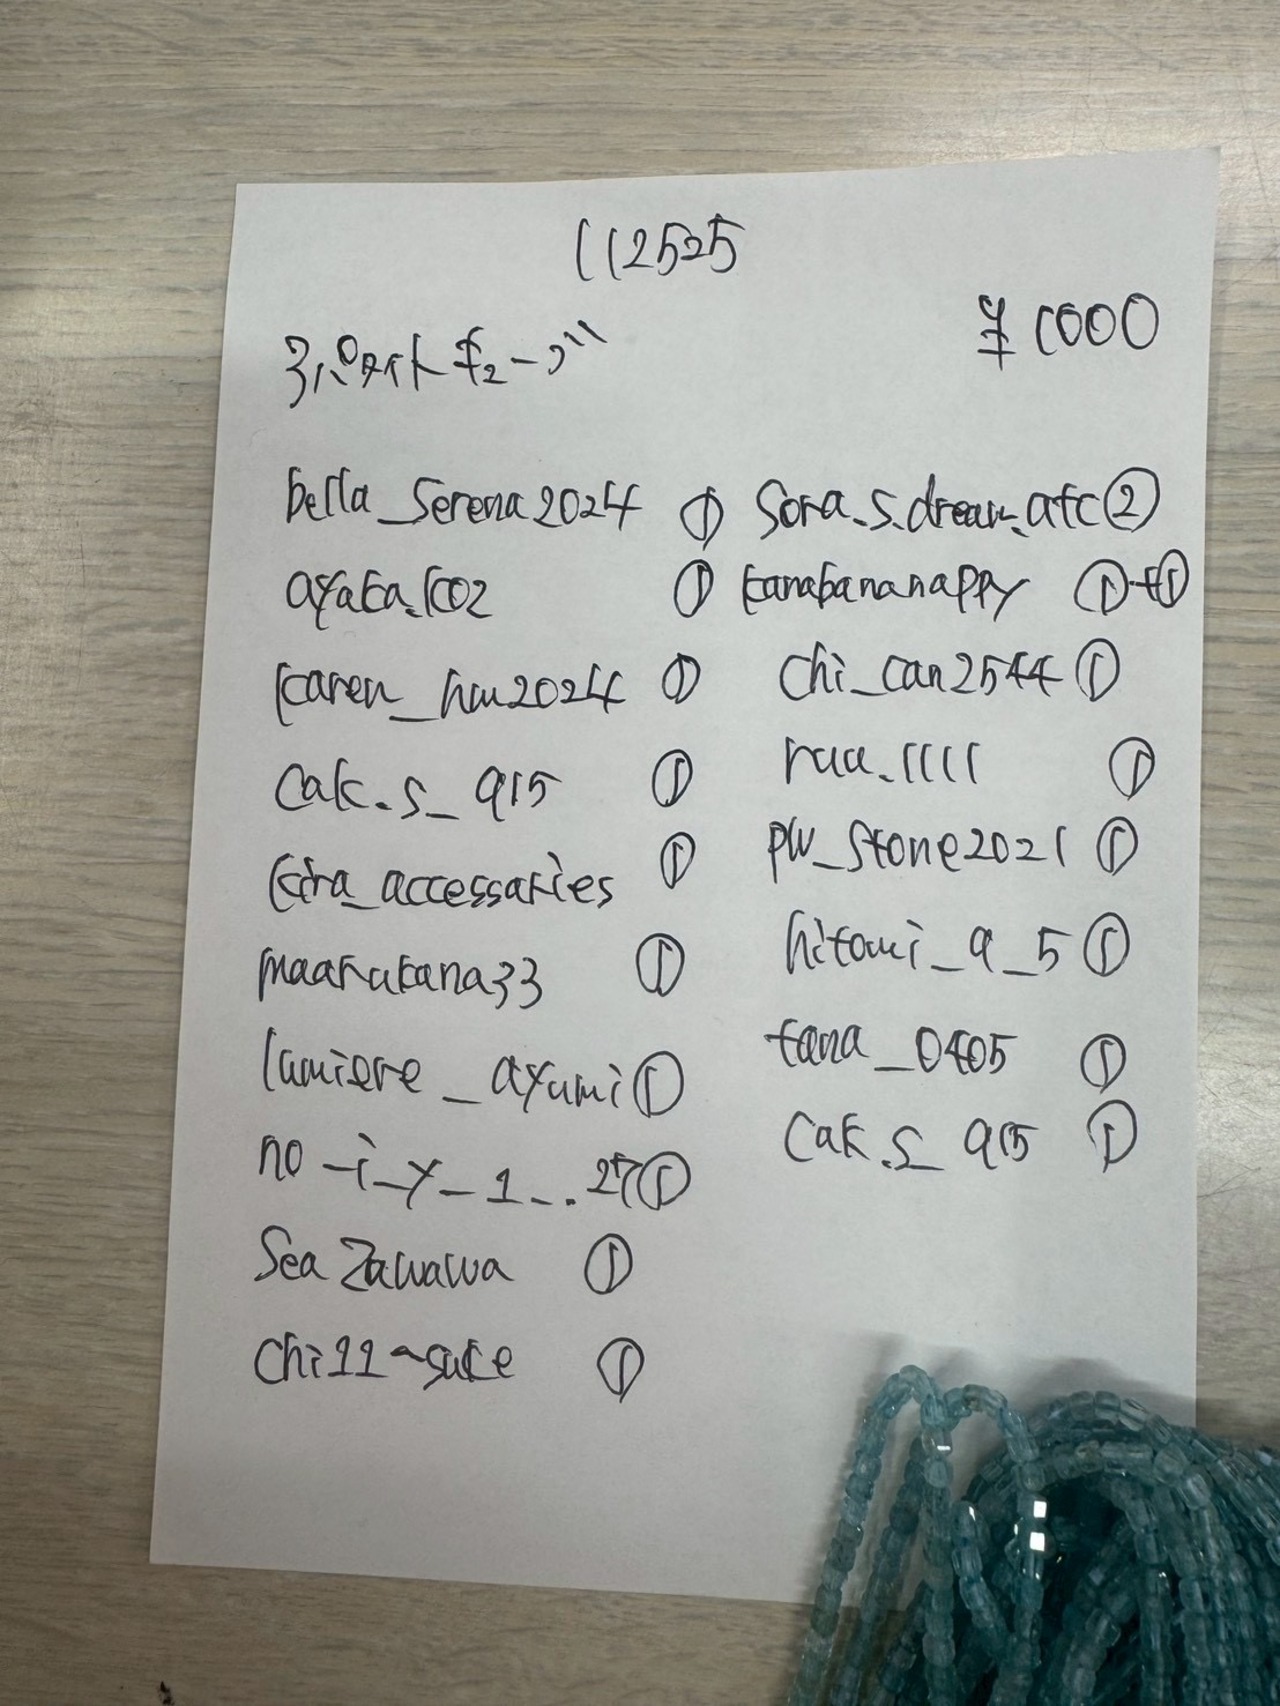 112525
¥1000
アパタイト キューブ
bella_serena2024 ①
ayaka.k02 ①
karen_hm2024 ①
cak.s_915 ①
kira_accessaries ①
maarukana33 ①
lumiere_ayumi ①
no_i_y_1_..27 ①
Sea Zawawa ①
chi11~suke ①
Sora.s.dream.atc ②
kanabananappy ①+①
chi_can2544 ①
ruu.1111 ①
pw_stone2021 ①
hitomi_a_5 ①
tana_0405 ①
cak.s_915 ①